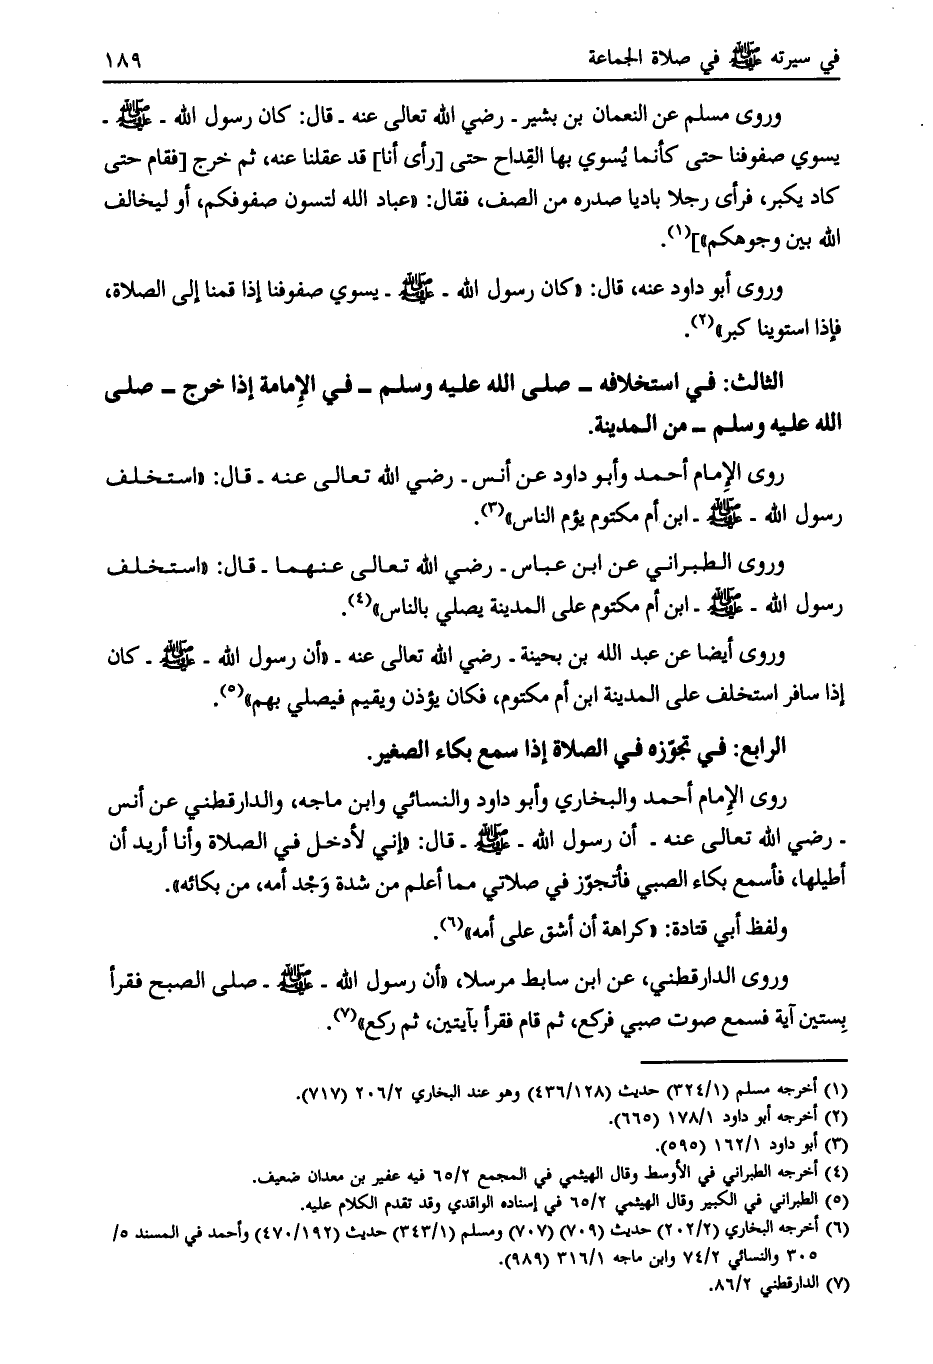 في سيرته ﷺ في صلاة الجماعة ١٨٩
وروى مسلم عن النعمان بن بشير ـ رضي الله تعالى عنه ـ قال: كان رسول الله ـ ﷺ ـ
يسوي صفوفنا حتى كأنما يُسوي بها القِداح حتى [رأى أنا] قد عقلنا عنه، ثم خرج [فقام حتى
كاد يكبر، فرأى رجلا باديا صدره من الصف، فقال: «عباد الله لتسون صفوفكم، أو ليخالف
الله بين وجوهكم»](١).
وروى أبو داود عنه، قال: «كان رسول الله ـ ﷺ ـ يسوي صفوفنا إذا قمنا إلى الصلاة،
فإذا استوينا كبر»(٢).
الثالث: في استخلافه ـ صلى الله عليه وسلم ـ في الإمامة إذا خرج ـ صلى
الله عليه وسلم ـ من المدينة.
روى الإمام أحمد وأبو داود عن أنس ـ رضي الله تعالى عنه ـ قال: «استخلف
رسول الله ـ ﷺ ـ ابن أم مكتوم يؤم الناس»(٣).
وروى الطبراني عن ابن عباس ـ رضي الله تعالى عنهما ـ قال: «استخلف
رسول الله ـ ﷺ ـ ابن أم مكتوم على المدينة يصلي بالناس»(٤).
وروى أيضا عن عبد الله بن بحينة ـ رضي الله تعالى عنه ـ «أن رسول الله ـ ﷺ ـ كان
إذا سافر استخلف على المدينة ابن أم مكتوم، فكان يؤذن ويقيم فيصلي بهم»(٥).
الرابع: في تجوّزه في الصلاة إذا سمع بكاء الصغير.
روى الإمام أحمد والبخاري وأبو داود والنسائي وابن ماجه، والدارقطني عن أنس
ـ رضي الله تعالى عنه ـ أن رسول الله ـ ﷺ ـ قال: «إني لأدخل في الصلاة وأنا أريد أن
أطيلها، فأسمع بكاء الصبي فأتجوّز في صلاتي مما أعلم من شدة وَجْد أمه، من بكائه».
ولفظ أبي قتادة: «كراهة أن أشق على أمه»(٦).
وروى الدارقطني، عن ابن سابط مرسلا، «أن رسول الله ـ ﷺ ـ صلى الصبح فقرأ
بِستين آية فسمع صوت صبي فركع، ثم قام فقرأ بآيتين، ثم ركع»(٧).
(١) أخرجه مسلم (٣٢٤/١) حديث (٤٣٦/١٢٨) وهو عند البخاري ٢٠٦/٢ (٧١٧).
(٢) أخرجه أبو داود ١٧٨/١ (٦٦٥).
(٣) أبو داود ١٦٢/١ (٥٩٥).
(٤) أخرجه الطبراني في الأوسط وقال الهيثمي في المجمع ٦٥/٢ فيه عفير بن معدان ضعيف.
(٥) الطبراني في الكبير وقال الهيثمي ٦٥/٢ في إسناده الواقدي وقد تقدم الكلام عليه.
(٦) أخرجه البخاري (٢٠٢/٢) حديث (٧٠٩) (٧٠٧) ومسلم (٣٤٣/١) حديث (٤٧٠/١٩٢) وأحمد في المسند ٥/
٣٠٥ والنسائي ٧٤/٢ وابن ماجه ٣١٦/١ (٩٨٩).
(٧) الدارقطني ٨٦/٢.